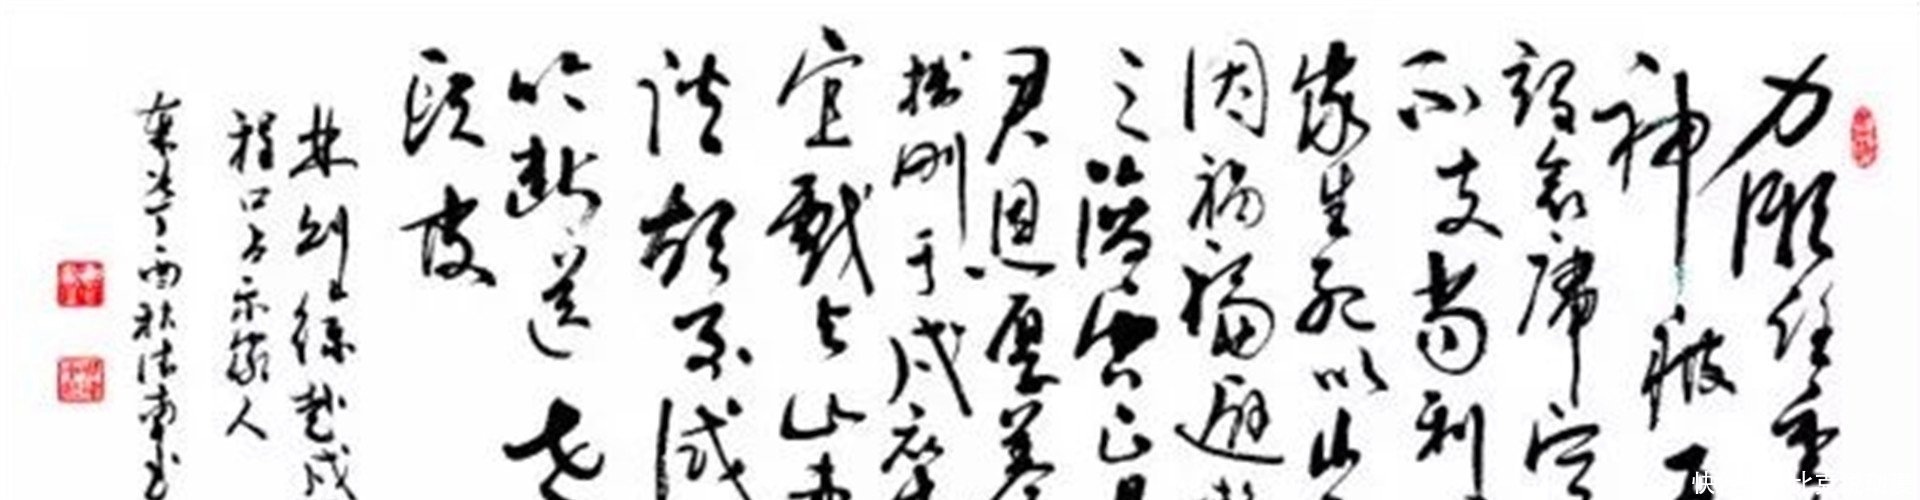 力微任重
神疲再
竭衰庸定
不支苟利
家生死以岂
因祸福避
之谪居正是
君恩厚养
拙刚于戍卒
宜戏与山妻
谈故事试
吟断送老
头皮
林则徐赴戍
程口占示家人
丁酉秋